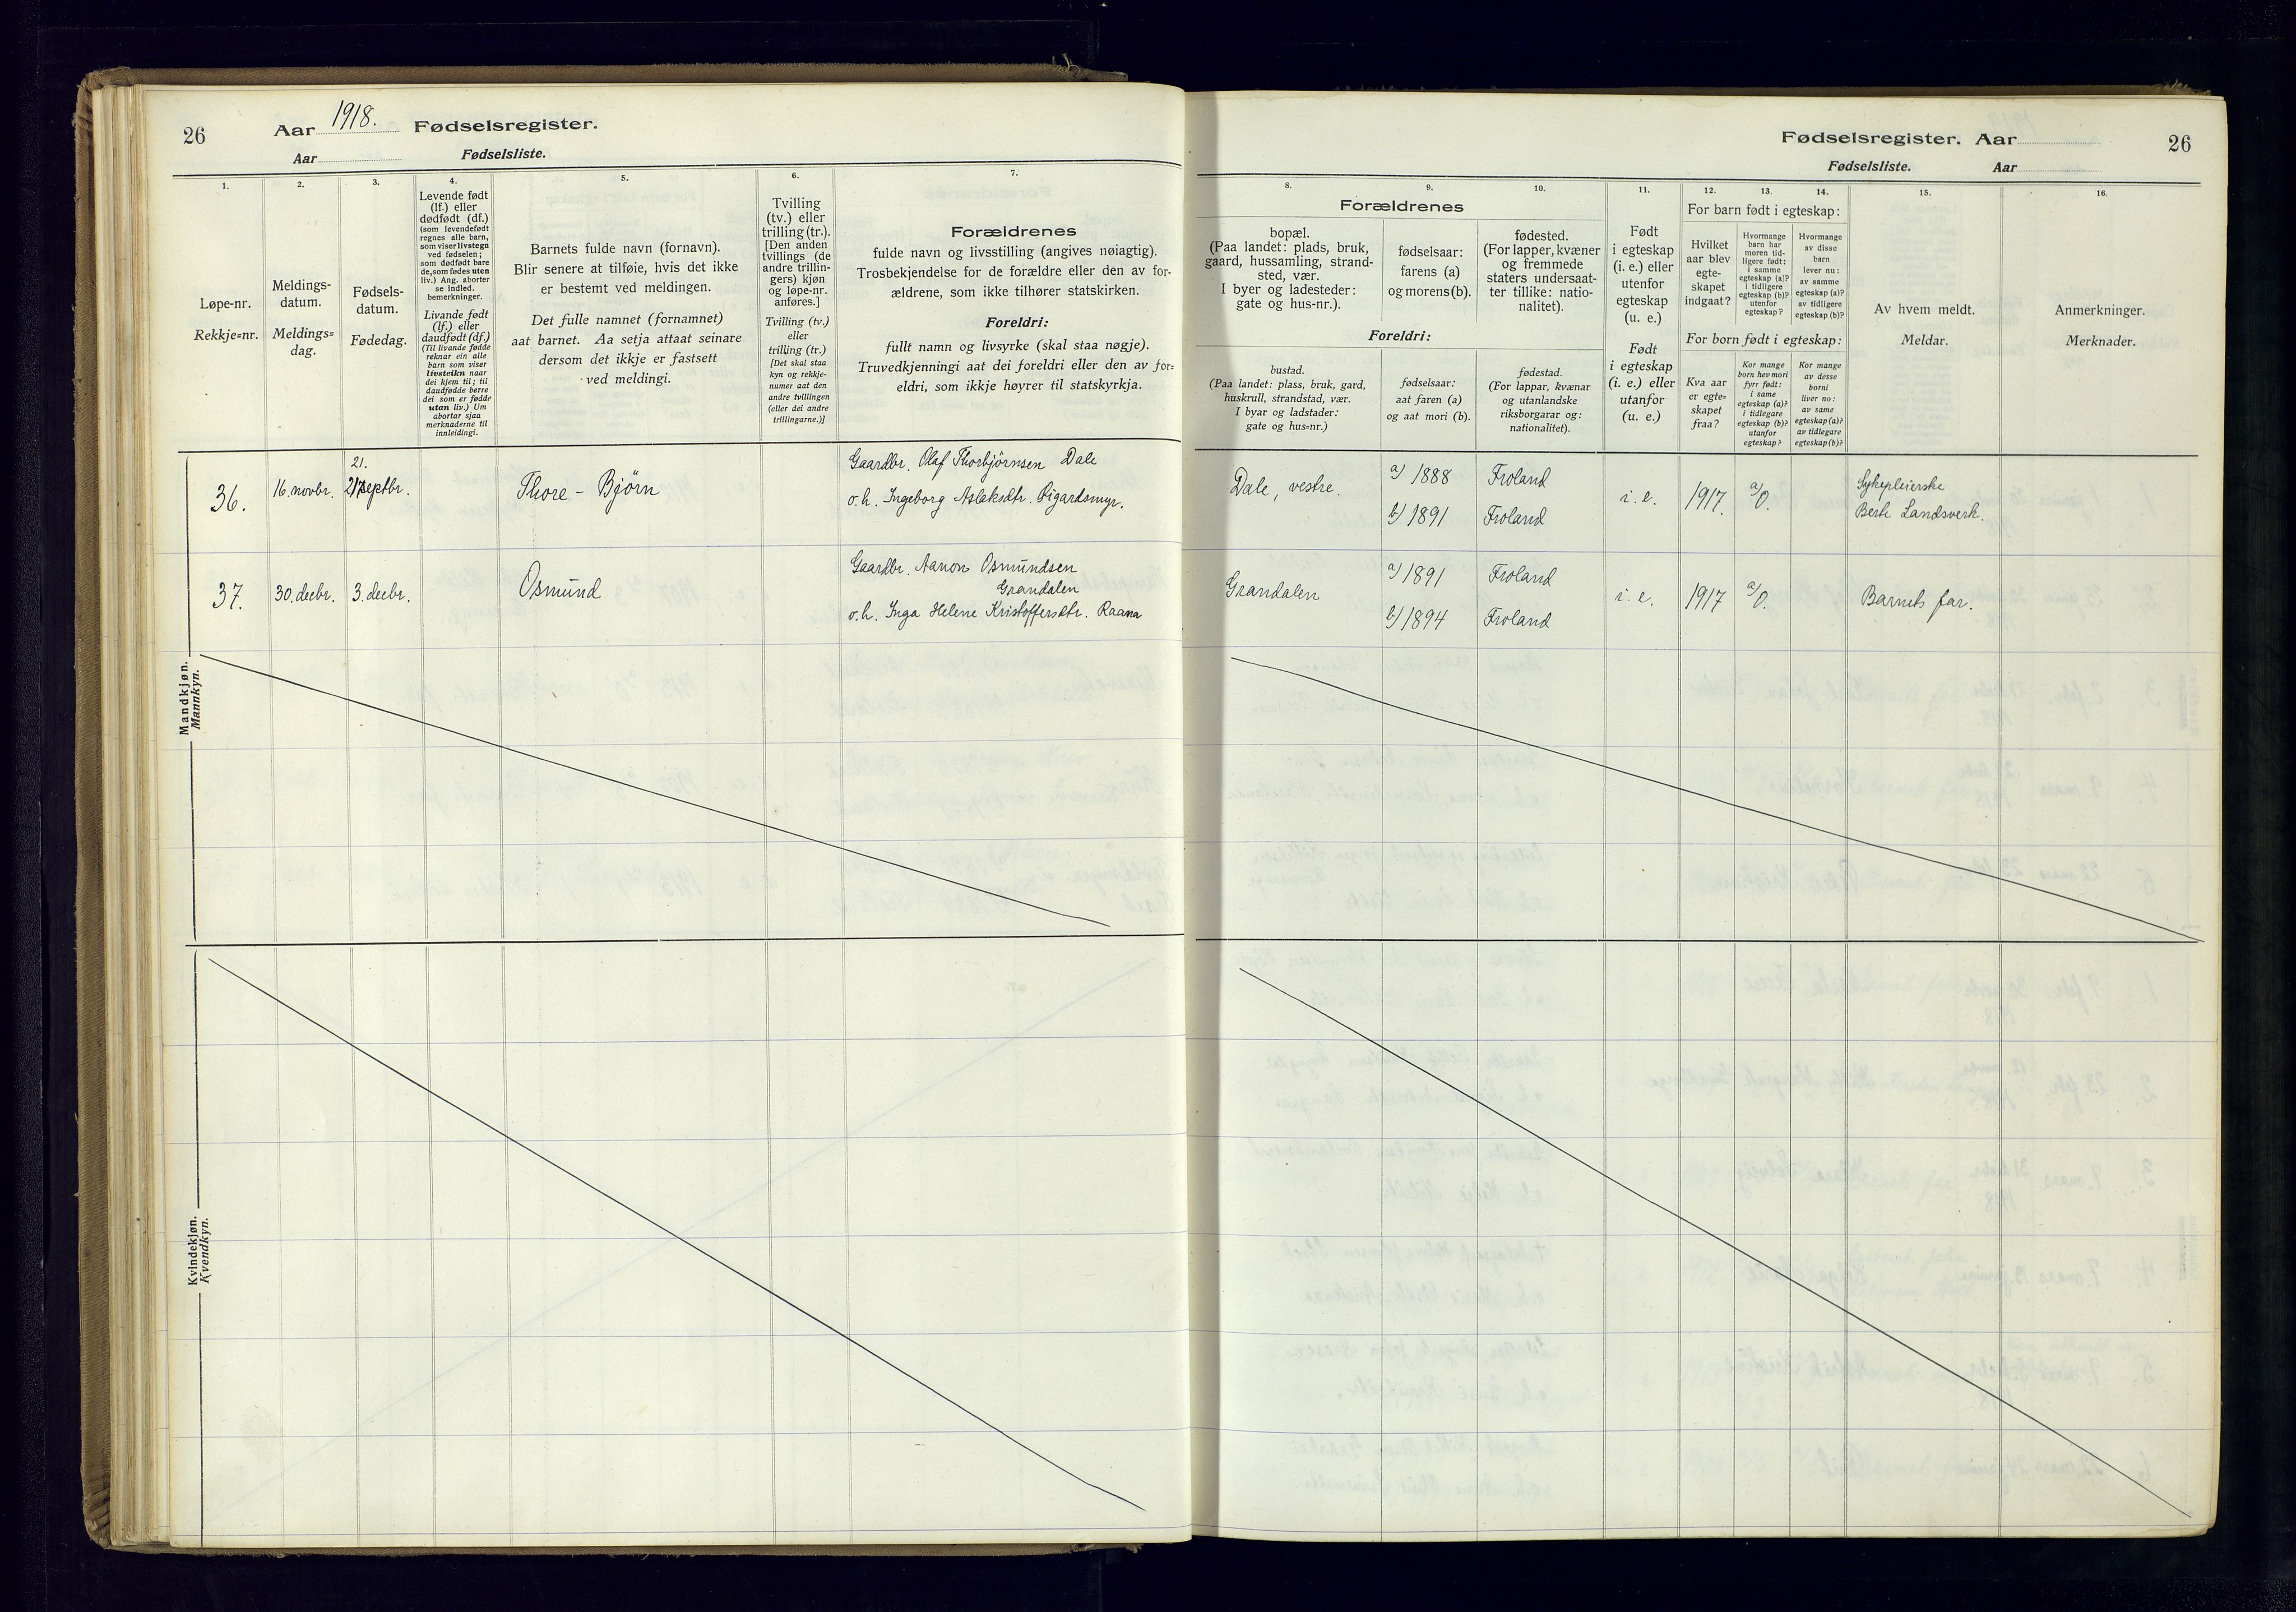 26
Aar 1918. Fødselsregister.
Aar Fødselsliste.
1.
Løpe-nr.
Rekkje=nr.
2.
Meldings-
datum.
Meldings=
dag.
3.
Fødsels-
datum.
Fødedag.
4.
Levende født
(lf.) eller
dødfødt (df.)
(som levendefødt
regnes alle barn,
som viser livstegn
ved fødselen;
som dødfødt bare
de, som fødes uten
liv.) Ang. aborter
se indled.
bemerkninger.
Livande født
(lf.) eller
daudfødt (df.)
(Til livande fødde
reknar ein alle
barn som viser
livsteikn naar
dei kjem til; til
daudfødde berre
dei som er fødde
utan liv.) Um
abortar sjaa
merknaderne til
innleidingi.
5.
Barnets fulde navn (fornavn).
Blir senere at tilføie, hvis det ikke
er bestemt ved meldingen.
Det fulle namnet (fornamnet)
aat barnet. Aa setja attaat seinare
dersom det ikkje er fastsett
ved meldingi.
6.
Tvilling
(tv.) eller
trilling (tr.).
[Den anden
tvillings (de
andre trillin-
gers) kjøn
og løpe-nr.
anføres.]
Tvilling (tv.)
eller
trilling (tr.)
[Det skal staa
kyn og rekkje-
numer aat den
andre tvillingen
(eller dei andre
trillingarne.)]
7.
Forældrenes
fulde navn og livsstilling (angives nøiagtig).
Trosbekjendelse for de forældre eller den av for-
ældrene, som ikke tilhører statskirken.
Foreldri:
fullt namn og livsyrke (skal staa nøgje).
Truvedkjenningi aat dei foreldri eller den av for=
eldri, som ikkje høyrer til statskyrkja.
Mandkjøn.
Mannkyn.
36.
16. novbr.
21.
septbr.
Thore - Bjørn
Gaardbr. Olaf Thorbjörnsen Dale
o. h. Ingeborg Aslaksdtr. Rigardsmyr.
37.
30. decbr.
3. decbr.
Osmund
Gaardbr. Aanon Osmundsen
Grandalen
o. h. Inga Helene Kristoffersdtr. Raana
Kvindekjøn.
Kvendkyn.
Fødselsregister. Aar
26
Fødselsliste. Aar
Forældrenes
8.
bopæl.
(Paa landet: plads, bruk,
gaard, hussamling, strand-
sted, vær.
I byer og ladesteder:
gate og hus-nr.).
9.
fødselsaar:
farens (a)
og morens (b).
10.
fødested.
(For lapper, kvæner
og fremmede
staters undersaat-
ter tillike: natio-
nalitet).
Foreldri:
bustad.
(Paa landet: plass, bruk, gard,
huskrull, strandstad, vær.
I byar og ladstader:
gate og hus=nr.)
fødselsaar:
aat faren (a)
og aat mori (b).
fødestad.
(For lappar, kvænar
og utanlandske
riksborgarar og:
nationalitet).
11.
Født
i egteskap
(i. e.) eller
utenfor
egteskap
(u. e.)
Født
i egteskap
(i. e.) eller
utanfor
(u. e.)
For barn født i egteskap:
12.
Hvilket
aar blev
egte-
skapet
indgaat?
13.
Hvormange
barn har
moren tid-
ligere født:
i samme
egteskap (a)?
i tidligere
egteskap (b)?
utenfor
egteskap?
14.
Hvormange
av disse
barn
lever nu:
av samme
egteskap (a)?
av tidligere
egteskap (b)?
For born født i egteskap:
Kva aar
er egte=
skapet
fraa?
Kor mange
born hev mori
fyrr født:
i same
egteskap (a)?
i tidlegare
egteskap (b)?
utanfor
egteskap?
Kor mange
av desse
borni
liver no:
av same
egteskap (a)?
av tidlegare
egteskap (b)?
15.
Av hvem meldt.
Meldar.
16.
Anmerkninger.
Merknader.
Dale, vestre.
a) 1888
Froland
b) 1891
Froland
i. e.
1917.
a) 0.
Sykepleierske
Berte Landsverk.
Grandalen
a) 1891
Froland
b) 1894
Froland
i. e.
1917
a) 0.
Barnets far.